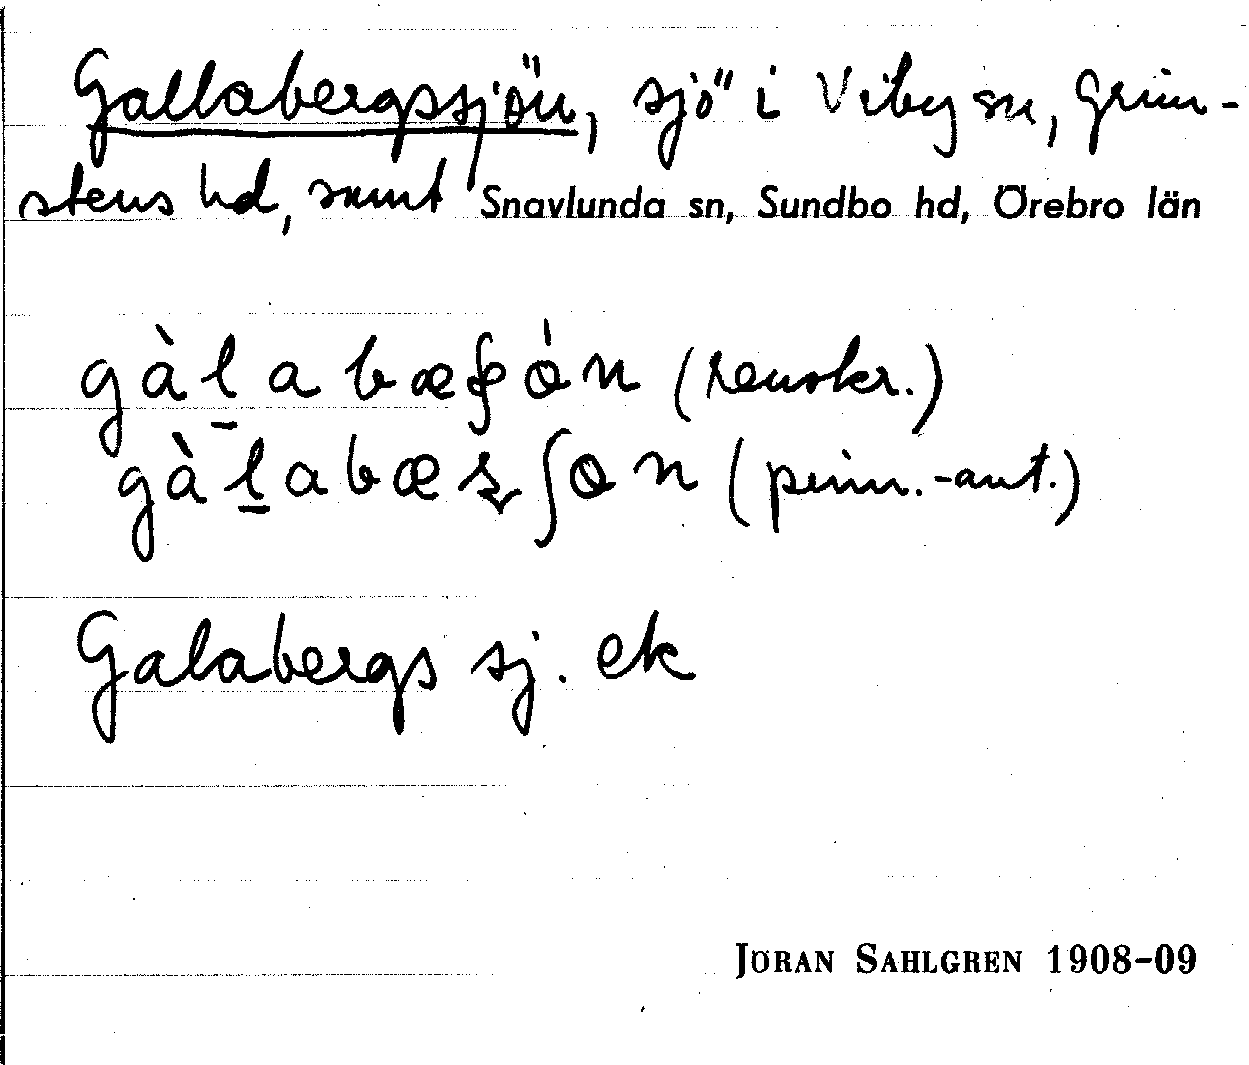 Gallabergssjön, sjö i Viby sn, Grim-
stens hd, samt Snavlunda sn, Sundbo hd, Örebro län
gàḻabæʂǿn (renskr.)
gàḻabæʂʃøn (prim.-ant.)
Galabergs sj. ek
JÖRAN SAHLGREN 1908-09